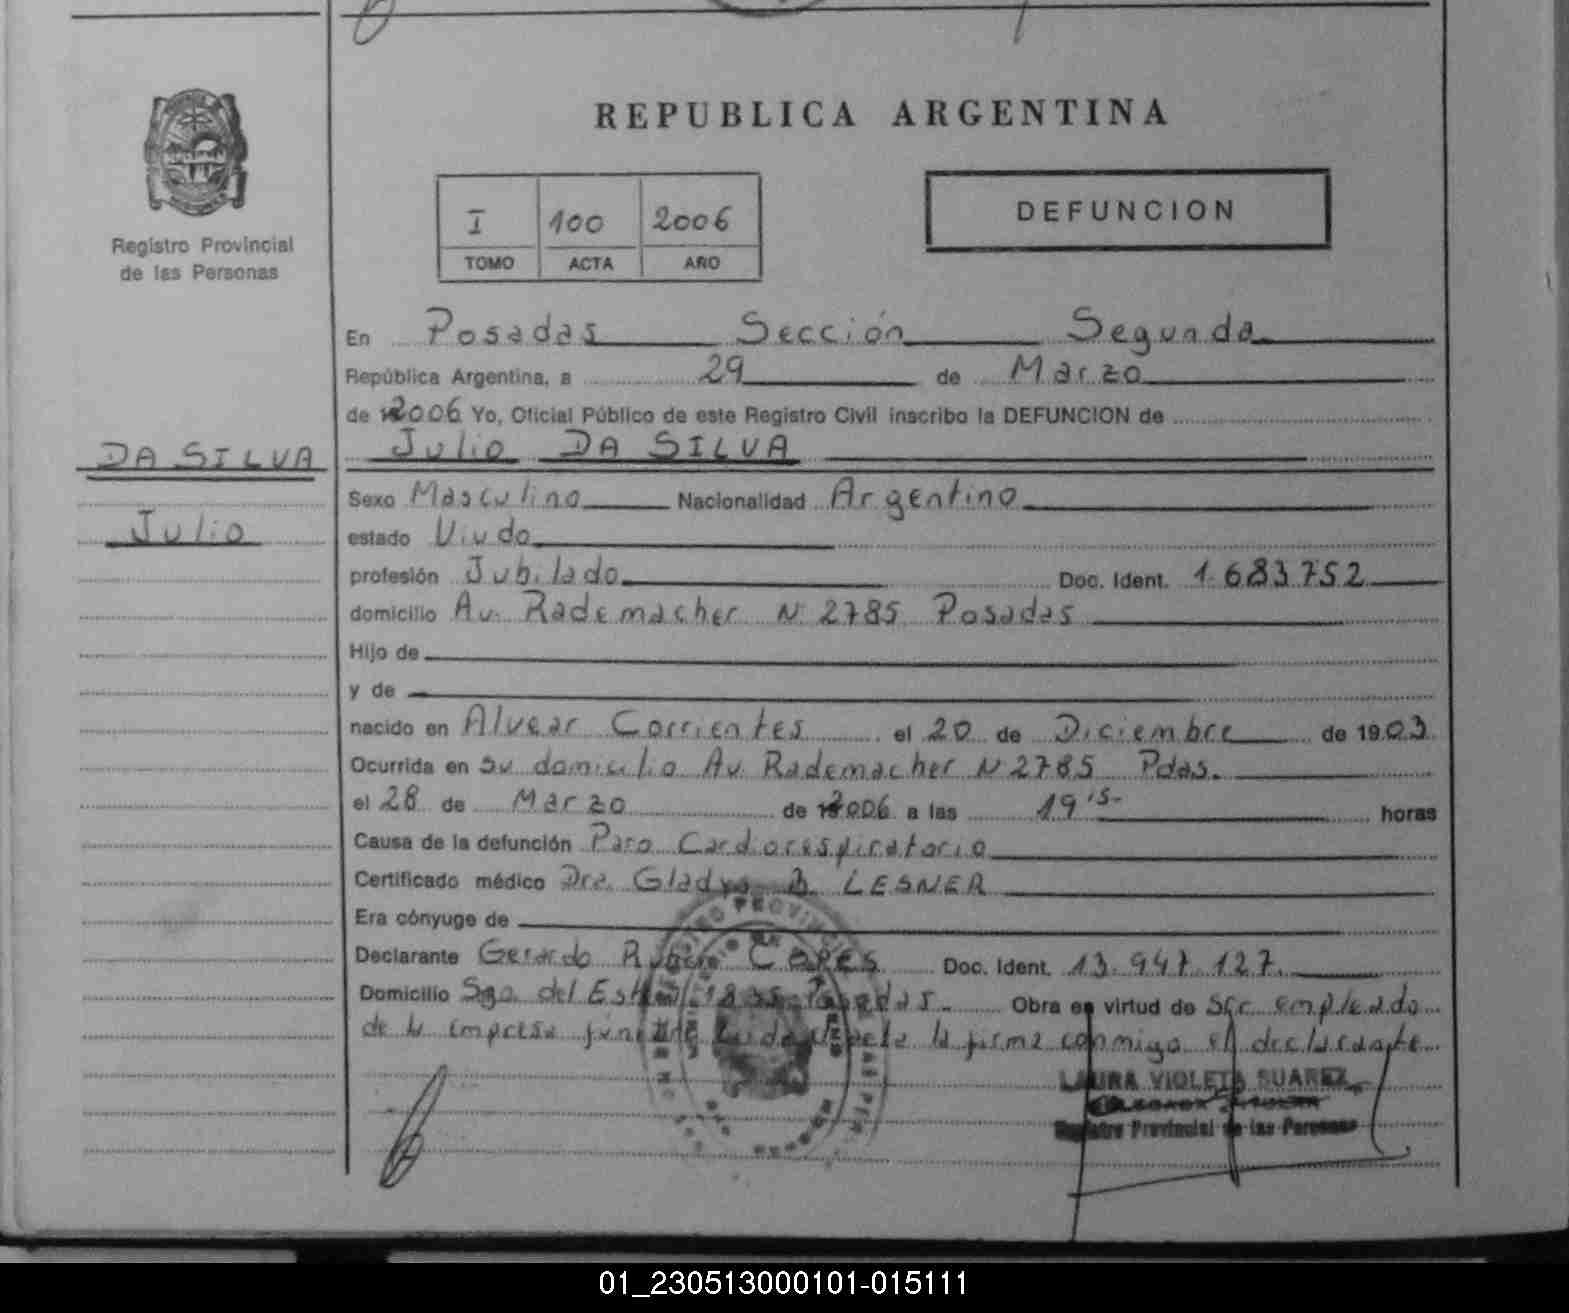 REPUBLICA ARGENTINA
Registro Provincial
de las Personas
I 100 2006
TOMO ACTA AÑO
DEFUNCION
En Posadas Sección Segunda
República Argentina, a 29 de Marzo
de 2006 Yo, Oficial Público de este Registro Civil inscribo la DEFUNCION de
DA SILVA
Julio DA SILVA
Julio
Sexo Masculino Nacionalidad Argentino
estado Viudo
profesión Jubilado Doc. Ident. 1.683.752
domicilio Av. Rademacher N 2785 Posadas
Hijo de
y de
nacido en Alvear Corrientes el 20 de Diciembre de 1903
Ocurrida en su domicilio Av. Rademacher N 2785 Pdas.
el 28 de Marzo de 2006 a las 19 15 horas
Causa de la defunción Paro Cardiorespiratorio
Certificado médico Dra. Gladys B. LESNER
Era cónyuge de
Declarante Gerardo Rubén Doc. Ident. 13.947.127
Domicilio Sgo. del Estero 1835 Posadas. Obra en virtud de ser empleado
de la empresa firma conmigo el declarante
LAURA VIOLETA SUAREZ
Registro Provincial de las Personas
01_230513000101-015111